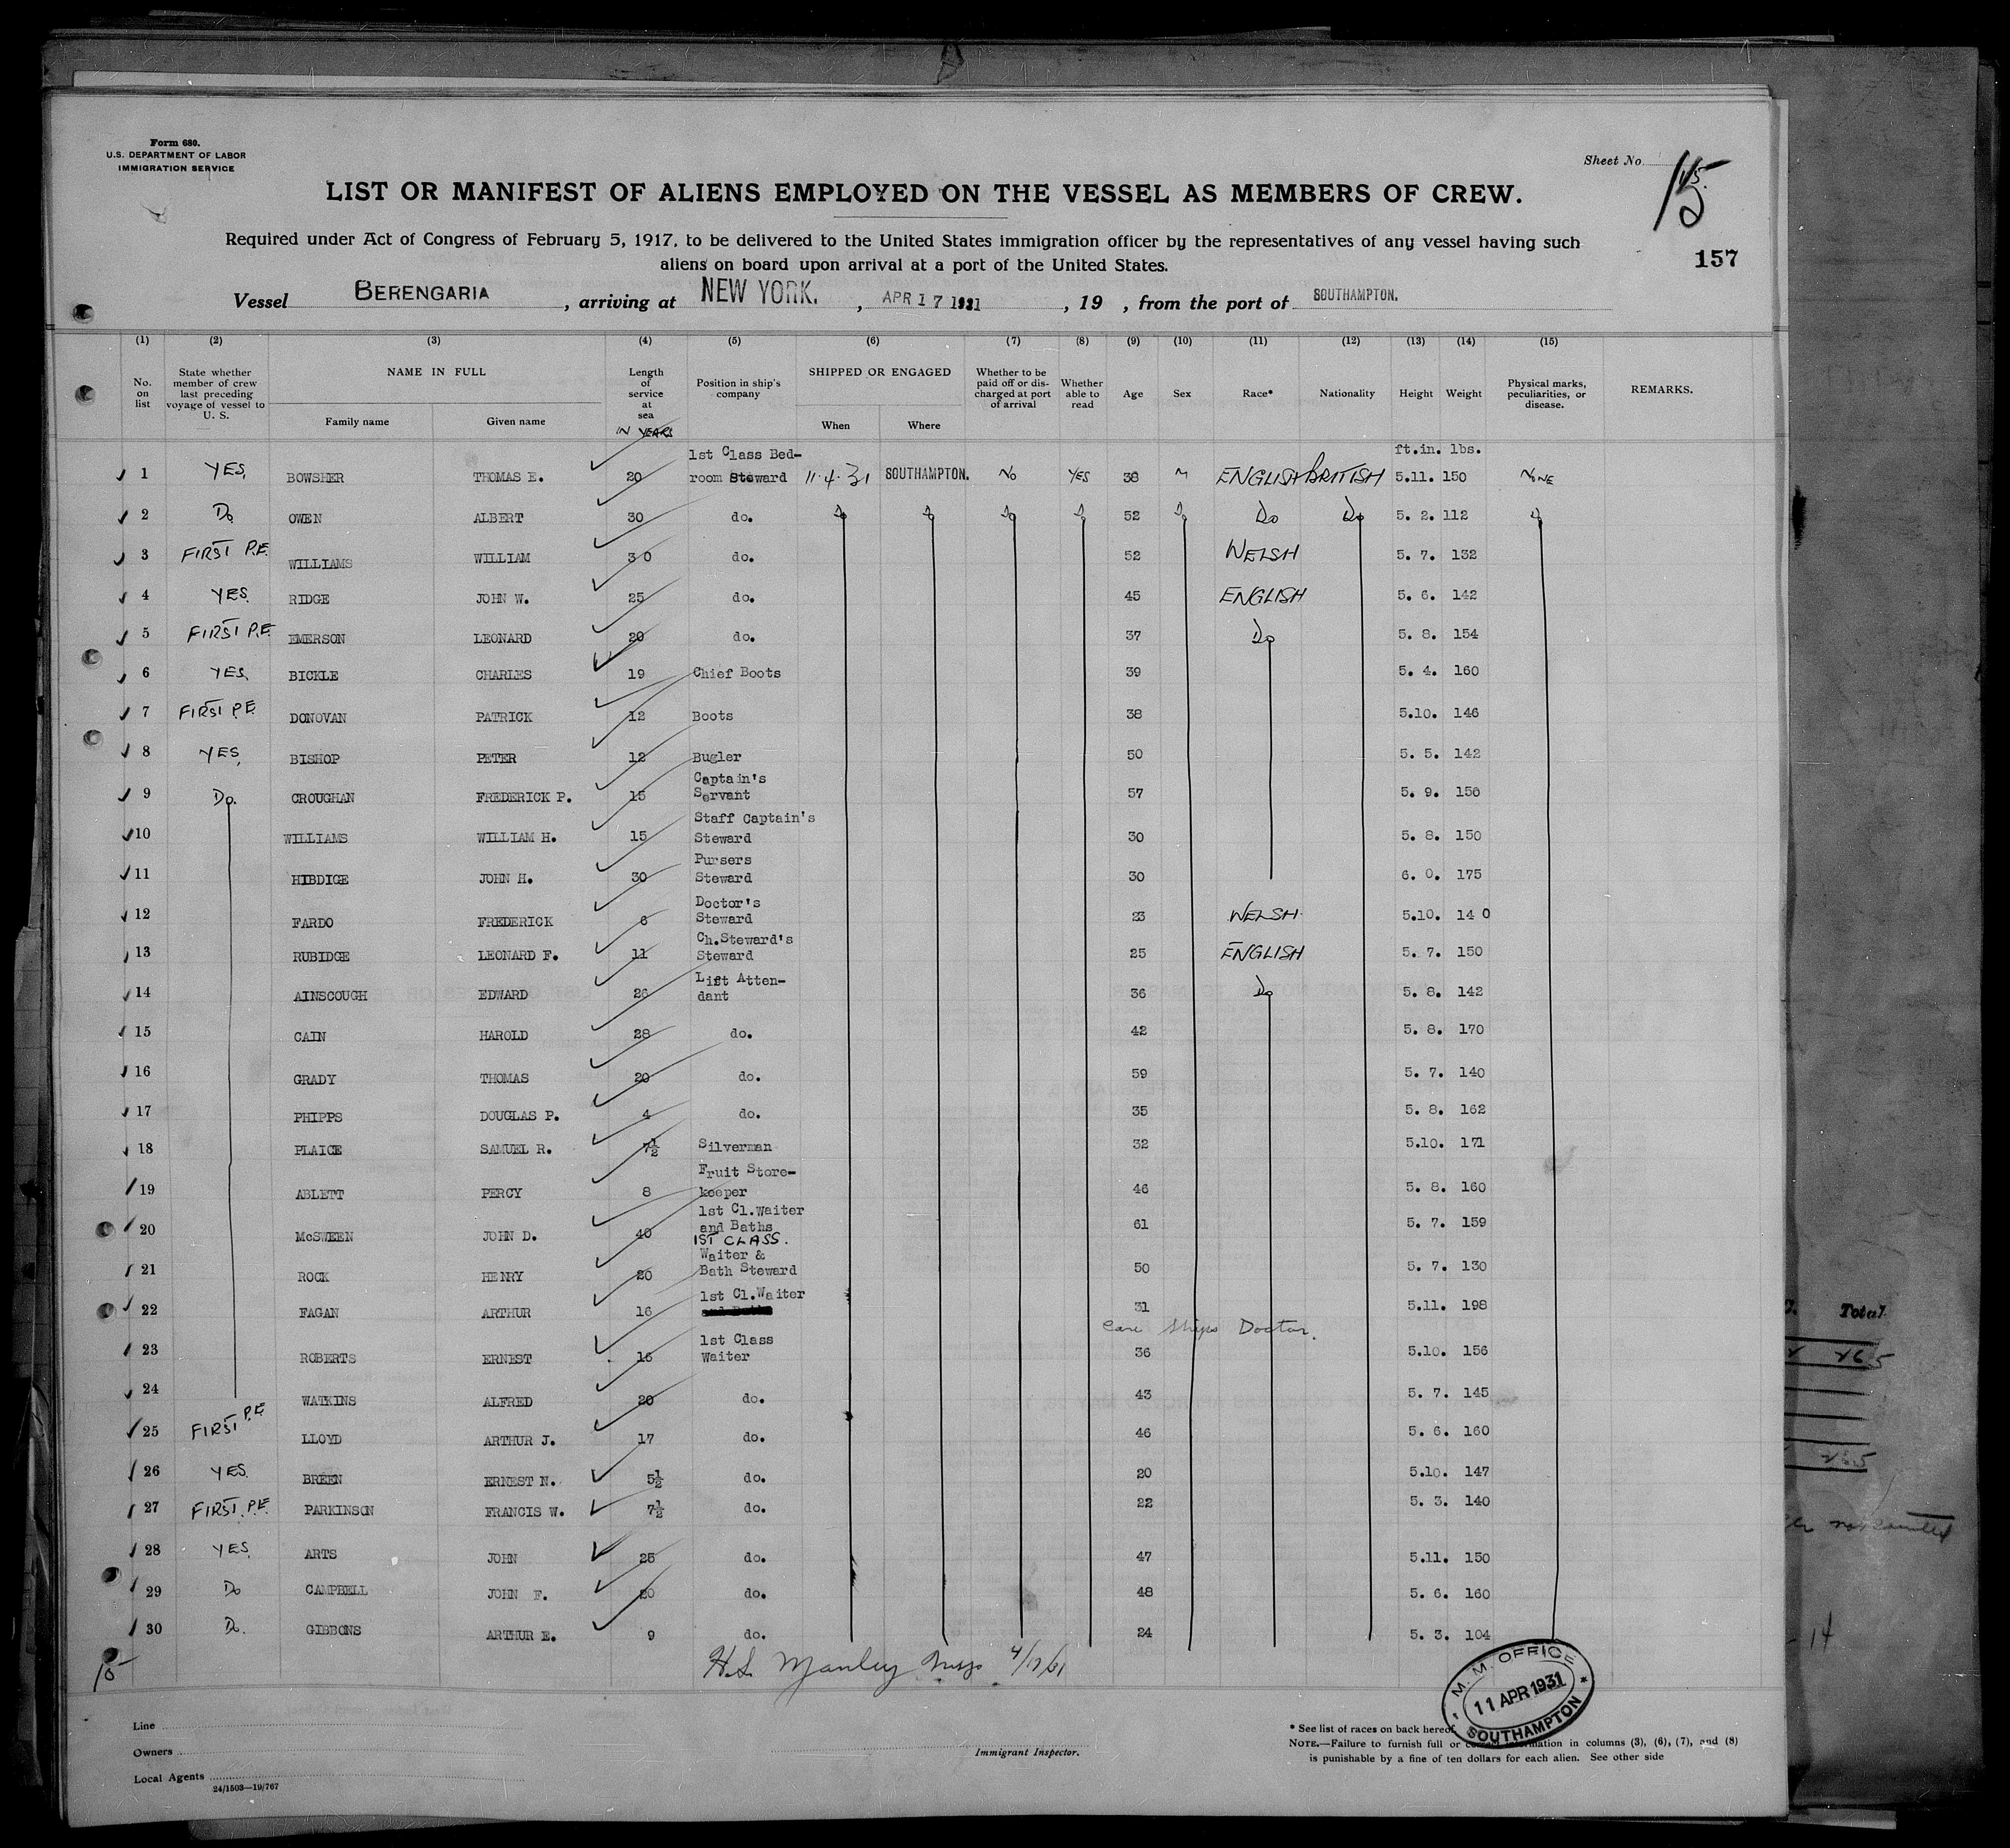 Form 680.
U.S. DEPARTMENT OF LABOR
IMMIGRATION SERVICE
Sheet No.
15
157
LIST OR MANIFEST OF ALIENS EMPLOYED ON THE VESSEL AS MEMBERS OF CREW.
Required under Act of Congress of February 5, 1917, to be delivered to the United States immigration officer by the representatives of any vessel having such
aliens on board upon arrival at a port of the United States.
Vessel BERENGARIA, arriving at NEW YORK., APR 17 1931, 19 , from the port of SOUTHAMPTON.
(1) (2) (3) (4) (5) (6) (7) (8) (9) (10) (11) (12) (13) (14) (15)
No. on list
State whether member of crew last preceding voyage of vessel to U. S.
NAME IN FULL
Family name
Given name
Length of service at sea
IN YEARS
Position in ship's company
SHIPPED OR ENGAGED
When
Where
Whether to be paid off or discharged at port of arrival
Whether able to read
Age
Sex
Race*
Nationality
Height
Weight
Physical marks, peculiarities, or disease.
REMARKS.
ft.in. lbs.
1 YES. BOWSHER THOMAS E. 20 1st Class Bed-room Steward 11.4.31 SOUTHAMPTON. NO YES 38 M ENGLISH BRITISH 5.11. 150 NONE
2 Do OWEN ALBERT 30 do. Do Do Do Do 52 Do Do Do 5. 2. 112 Do
3 FIRST P.E. WILLIAMS WILLIAM 30 do. 52 WELSH 5. 7. 132
4 YES. RIDGE JOHN W. 25 do. 45 ENGLISH 5. 6. 142
5 FIRST P.E. EMERSON LEONARD 20 do. 37 Do 5. 8. 154
6 YES. BICKLE CHARLES 19 Chief Boots 39 5. 4. 160
7 FIRST P.E. DONOVAN PATRICK 12 Boots 38 5.10. 146
8 YES. BISHOP PETER 12 Bugler 50 5. 5. 142
9 Do. CROUGHAN FREDERICK P. 15 Captain's Servant 57 5. 9. 156
10 WILLIAMS WILLIAM H. 15 Staff Captain's Steward 30 5. 8. 150
11 HIBDIGE JOHN H. 30 Pursers Steward 30 6. 0. 175
12 FARDO FREDERICK 6 Doctor's Steward 23 WELSH. 5.10. 14 0
13 RUBIDGE LEONARD F. 11 Ch.Steward's Steward 25 ENGLISH 5. 7. 150
14 AINSCOUGH EDWARD 26 Lift Atten-dant 36 Do 5. 8. 142
15 CAIN HAROLD 28 do. 42 5. 8. 170
16 GRADY THOMAS 20 do. 59 5. 7. 140
17 PHIPPS DOUGLAS P. 4 do. 35 5. 8. 162
18 PLAICE SAMUEL R. 7½ Silverman 32 5.10. 171
19 ABLETT PERCY 8 Fruit Store-keeper 46 5. 8. 160
20 McSWEEN JOHN D. 40 1st Cl.Waiter and Baths 61 5. 7. 159
21 ROCK HENRY 20 1ST CLASS. Waiter & Bath Steward 50 5. 7. 130
22 FAGAN ARTHUR 16 1st Cl.Waiter 31 5.11. 198
Care Ships Doctor.
23 ROBERTS ERNEST 15 1st Class Waiter 36 5.10. 156
24 WATKINS ALFRED 20 do. 43 5. 7. 145
25 FIRST P.E LLOYD ARTHUR J. 17 do. 46 5. 6. 160
26 YES. BREEN ERNEST N. 5½ do. 20 5.10. 147
27 FIRST. P.E. PARKINSON FRANCIS W. 7½ do. 22 5. 3. 140
28 YES. ARTS JOHN 25 do. 47 5.11. 150
29 Do CAMPBELL JOHN F. 20 do. 48 5. 6. 160
30 Do. GIBBONS ARTHUR E. 9 do. 24 5. 3. 104
15
H.S. Manley Insp
M.M. OFFICE
11 APR 1931
SOUTHAMPTON
Line
Owners
Local Agents
24/1503—19/767
Immigrant Inspector.
* See list of races on back hereof
NOTE.—Failure to furnish full or information in columns (3), (6), (7), and (8)
is punishable by a fine of ten dollars for each alien. See other side
Total
14